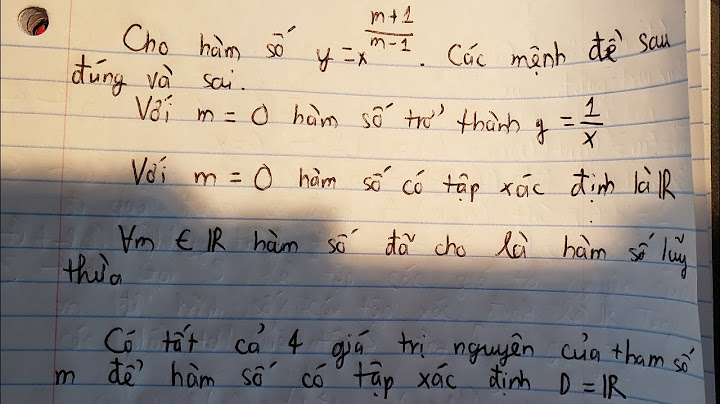 Cho hàm số y = x^{\frac{m+1}{m-1}}. Các mệnh đề sau
đúng và sai.
Với m = 0 hàm số trở thành y = \frac{1}{x}
Với m = 0 hàm số có tập xác định là ℝ
∀m ∈ ℝ hàm số đã cho là hàm số luỹ
thừa
Có tất cả 4 giá trị nguyên của tham số
m để hàm số có tập xác định D = ℝ